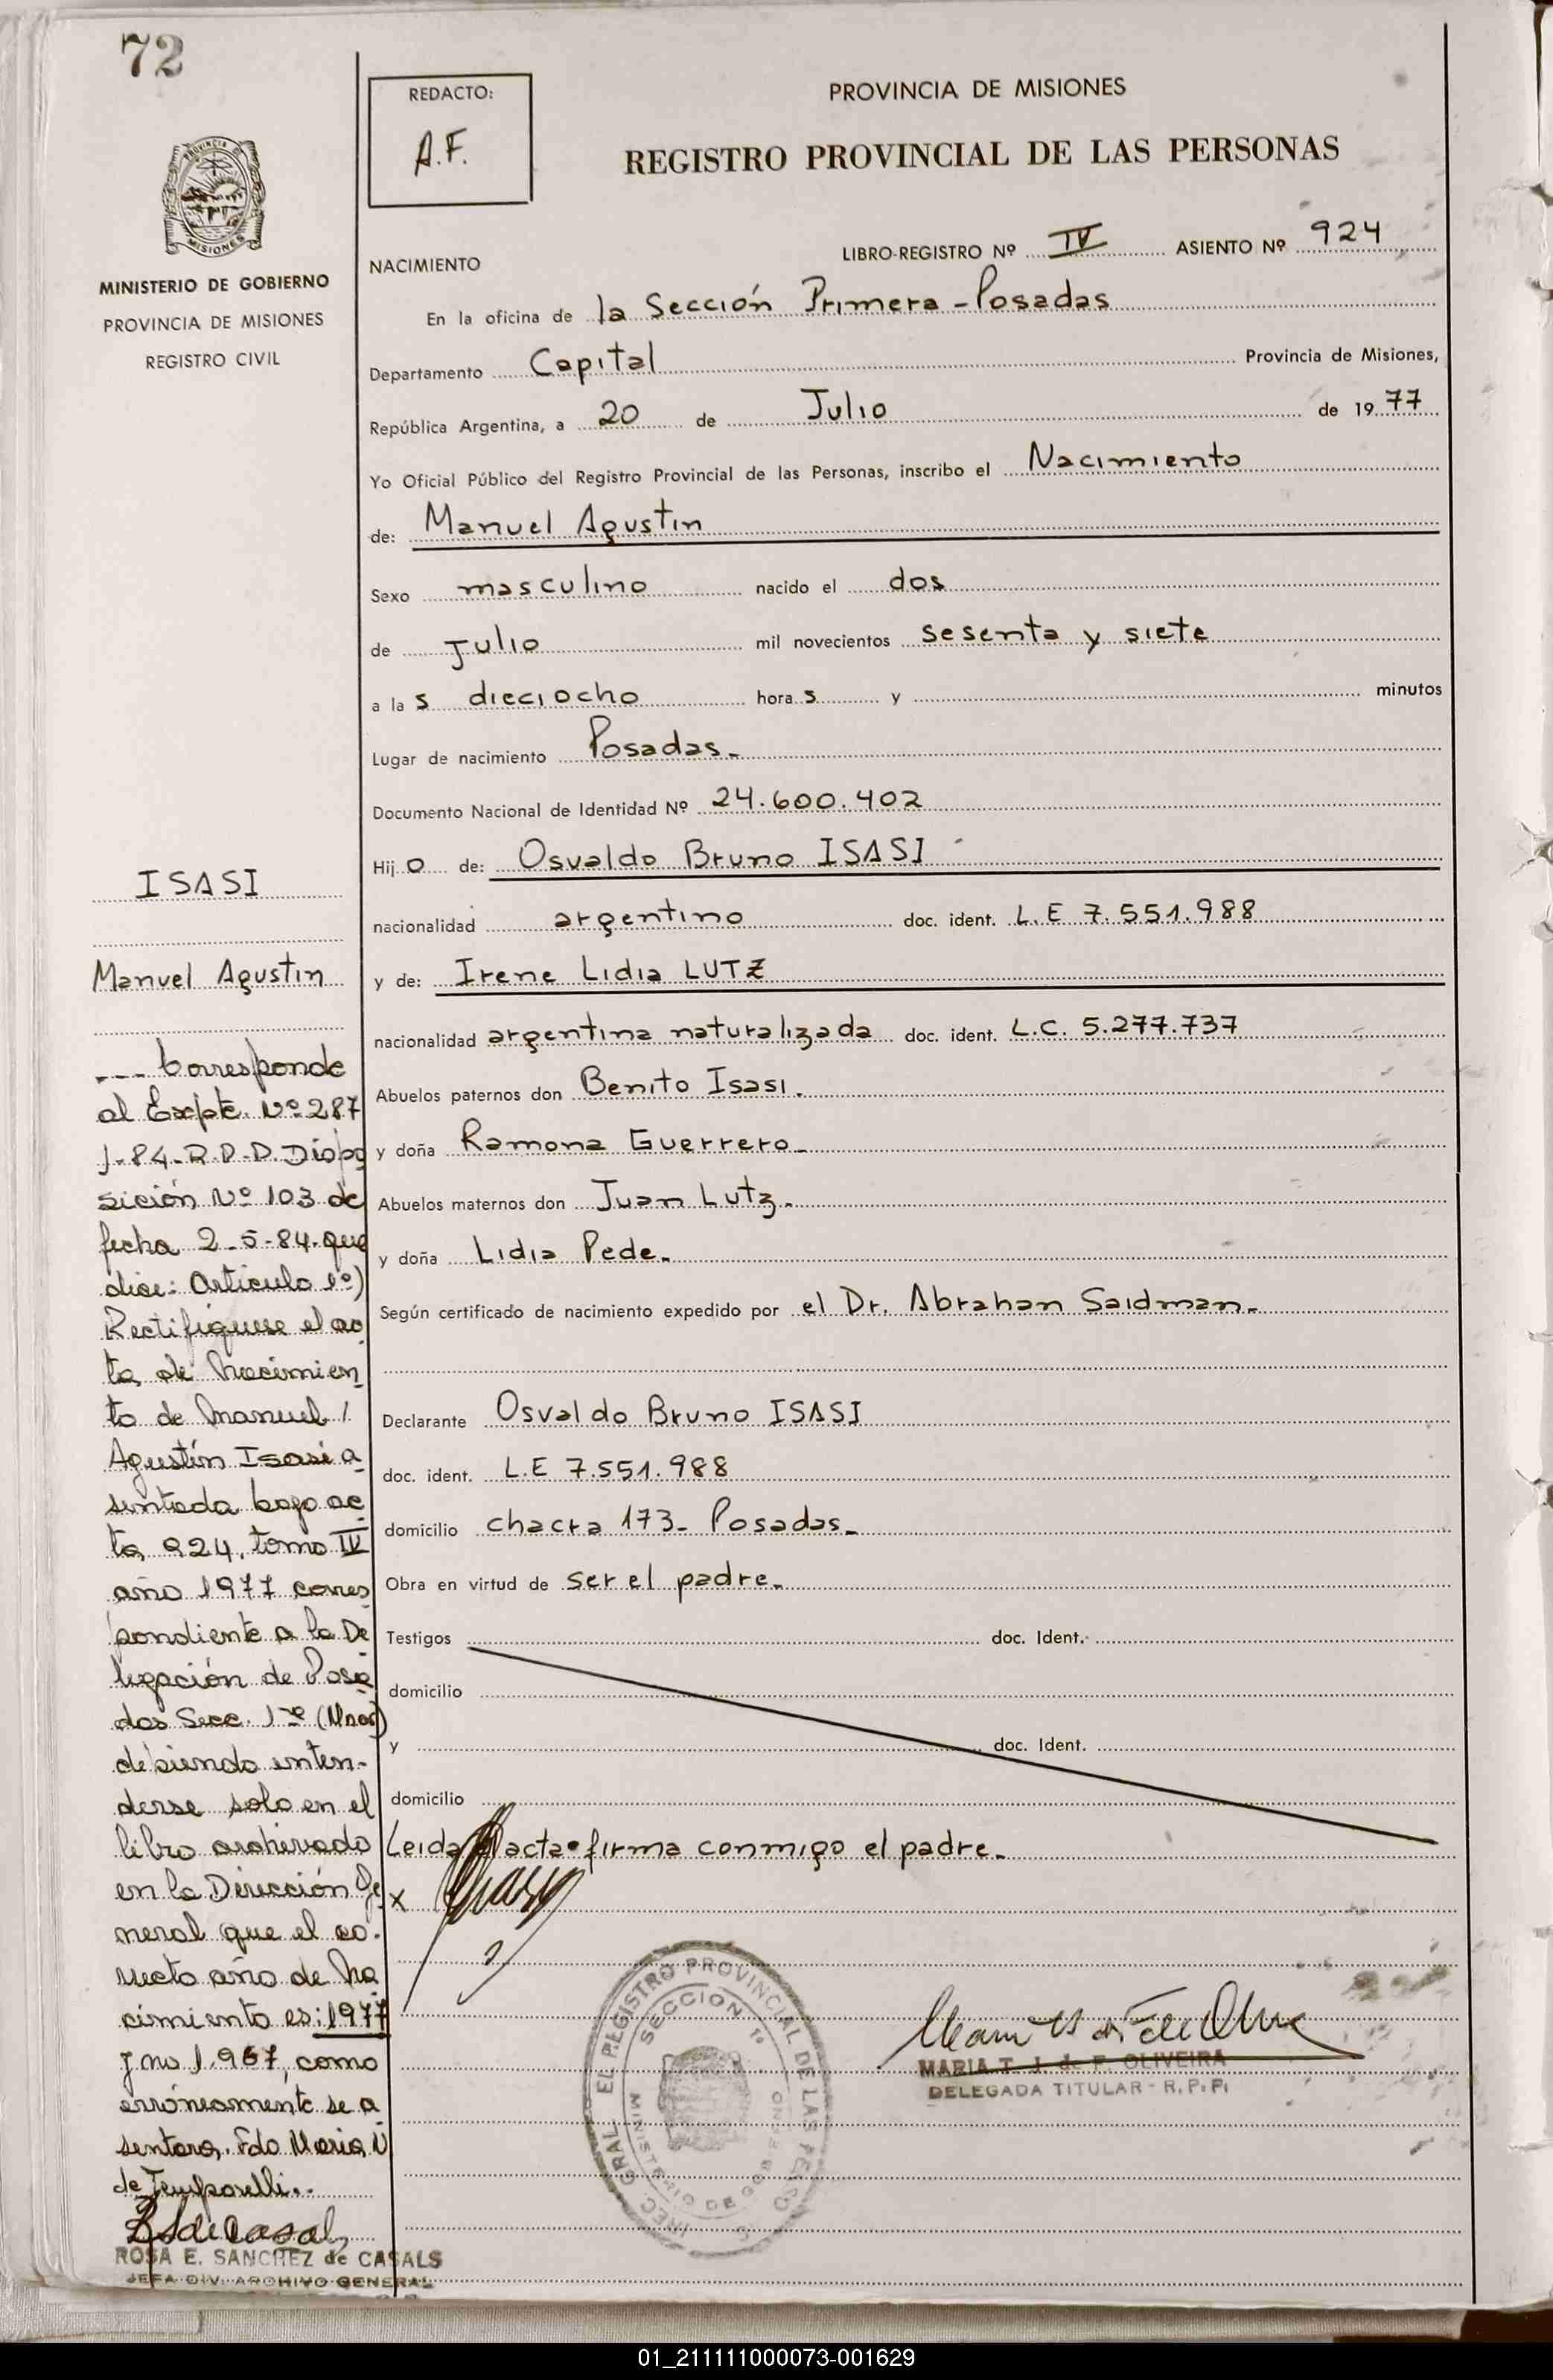 72
REDACTO:
A.F.
PROVINCIA DE MISIONES
REGISTRO PROVINCIAL DE LAS PERSONAS
PROVINCIA
MISIONES
MINISTERIO DE GOBIERNO
PROVINCIA DE MISIONES
REGISTRO CIVIL
LIBRO-REGISTRO Nº IV ASIENTO Nº 924
NACIMIENTO
En la oficina de la Sección Primera - Posadas
Departamento Capital Provincia de Misiones,
República Argentina, a 20 de Julio de 1977
Yo Oficial Público del Registro Provincial de las Personas, inscribo el Nacimiento
de: Manuel Agustin
Sexo masculino nacido el dos
de Julio mil novecientos sesenta y siete
a las dieciocho horas y minutos
Lugar de nacimiento Posadas-
Documento Nacional de Identidad Nº 24.600.402
Hijo de: Osvaldo Bruno ISASI
nacionalidad argentino doc. ident. L.E 7.551.988
y de: Irene Lidia LUTZ
nacionalidad argentina naturalizada doc. ident. L.C. 5.277.737
Abuelos paternos don Benito Isasi.
y doña Ramona Guerrero-
Abuelos maternos don Juan Lutz.
y doña Lidia Pede.
Según certificado de nacimiento expedido por el Dr. Abrahan Saidman-
Declarante Osvaldo Bruno ISASI
doc. ident. L.E 7.551.988
domicilio chacra 173- Posadas-
Obra en virtud de ser el padre.
Testigos doc. Ident.
domicilio
y doc. Ident.
domicilio
Leida el acta firma conmigo el padre.
x
ISASI
Manuel Agustin
--- Corresponde
al Expte. Nº 287
J-84-R.P.P. Dispo
sición Nº 103 de
fecha 2-5-84 que
dice: Articulo 1º)
Rectifiquese el ac
ta de Nacimien
to de Manuel /
Agustín Isasi a
sentada bajo ac
ta 924, tomo IV
año 1977 corres
pondiente a la De
legación de Posa
das Secc. 1ra (Mnes)
debiendo enten-
derse solo en el
libro archivado
en la Dirección Ge
neral que el co-
rrecto año de Na
cimiento es: 1977
y no 1.967, como
erróneamente se a
sentara. Fdo Maria N
de Temporelli.-
ROSA E. SANCHEZ de CASALS
JEFA DIV. ARCHIVO GENERAL
DIREC. GRAL. EL REGISTRO PROVINCIAL DE LAS PERSO
SECCION 1º
MINISTERIO DE GOBIERNO
MARIA T. J. de F. OLIVEIRA
DELEGADA TITULAR - R.P.P.
01_211111000073-001629